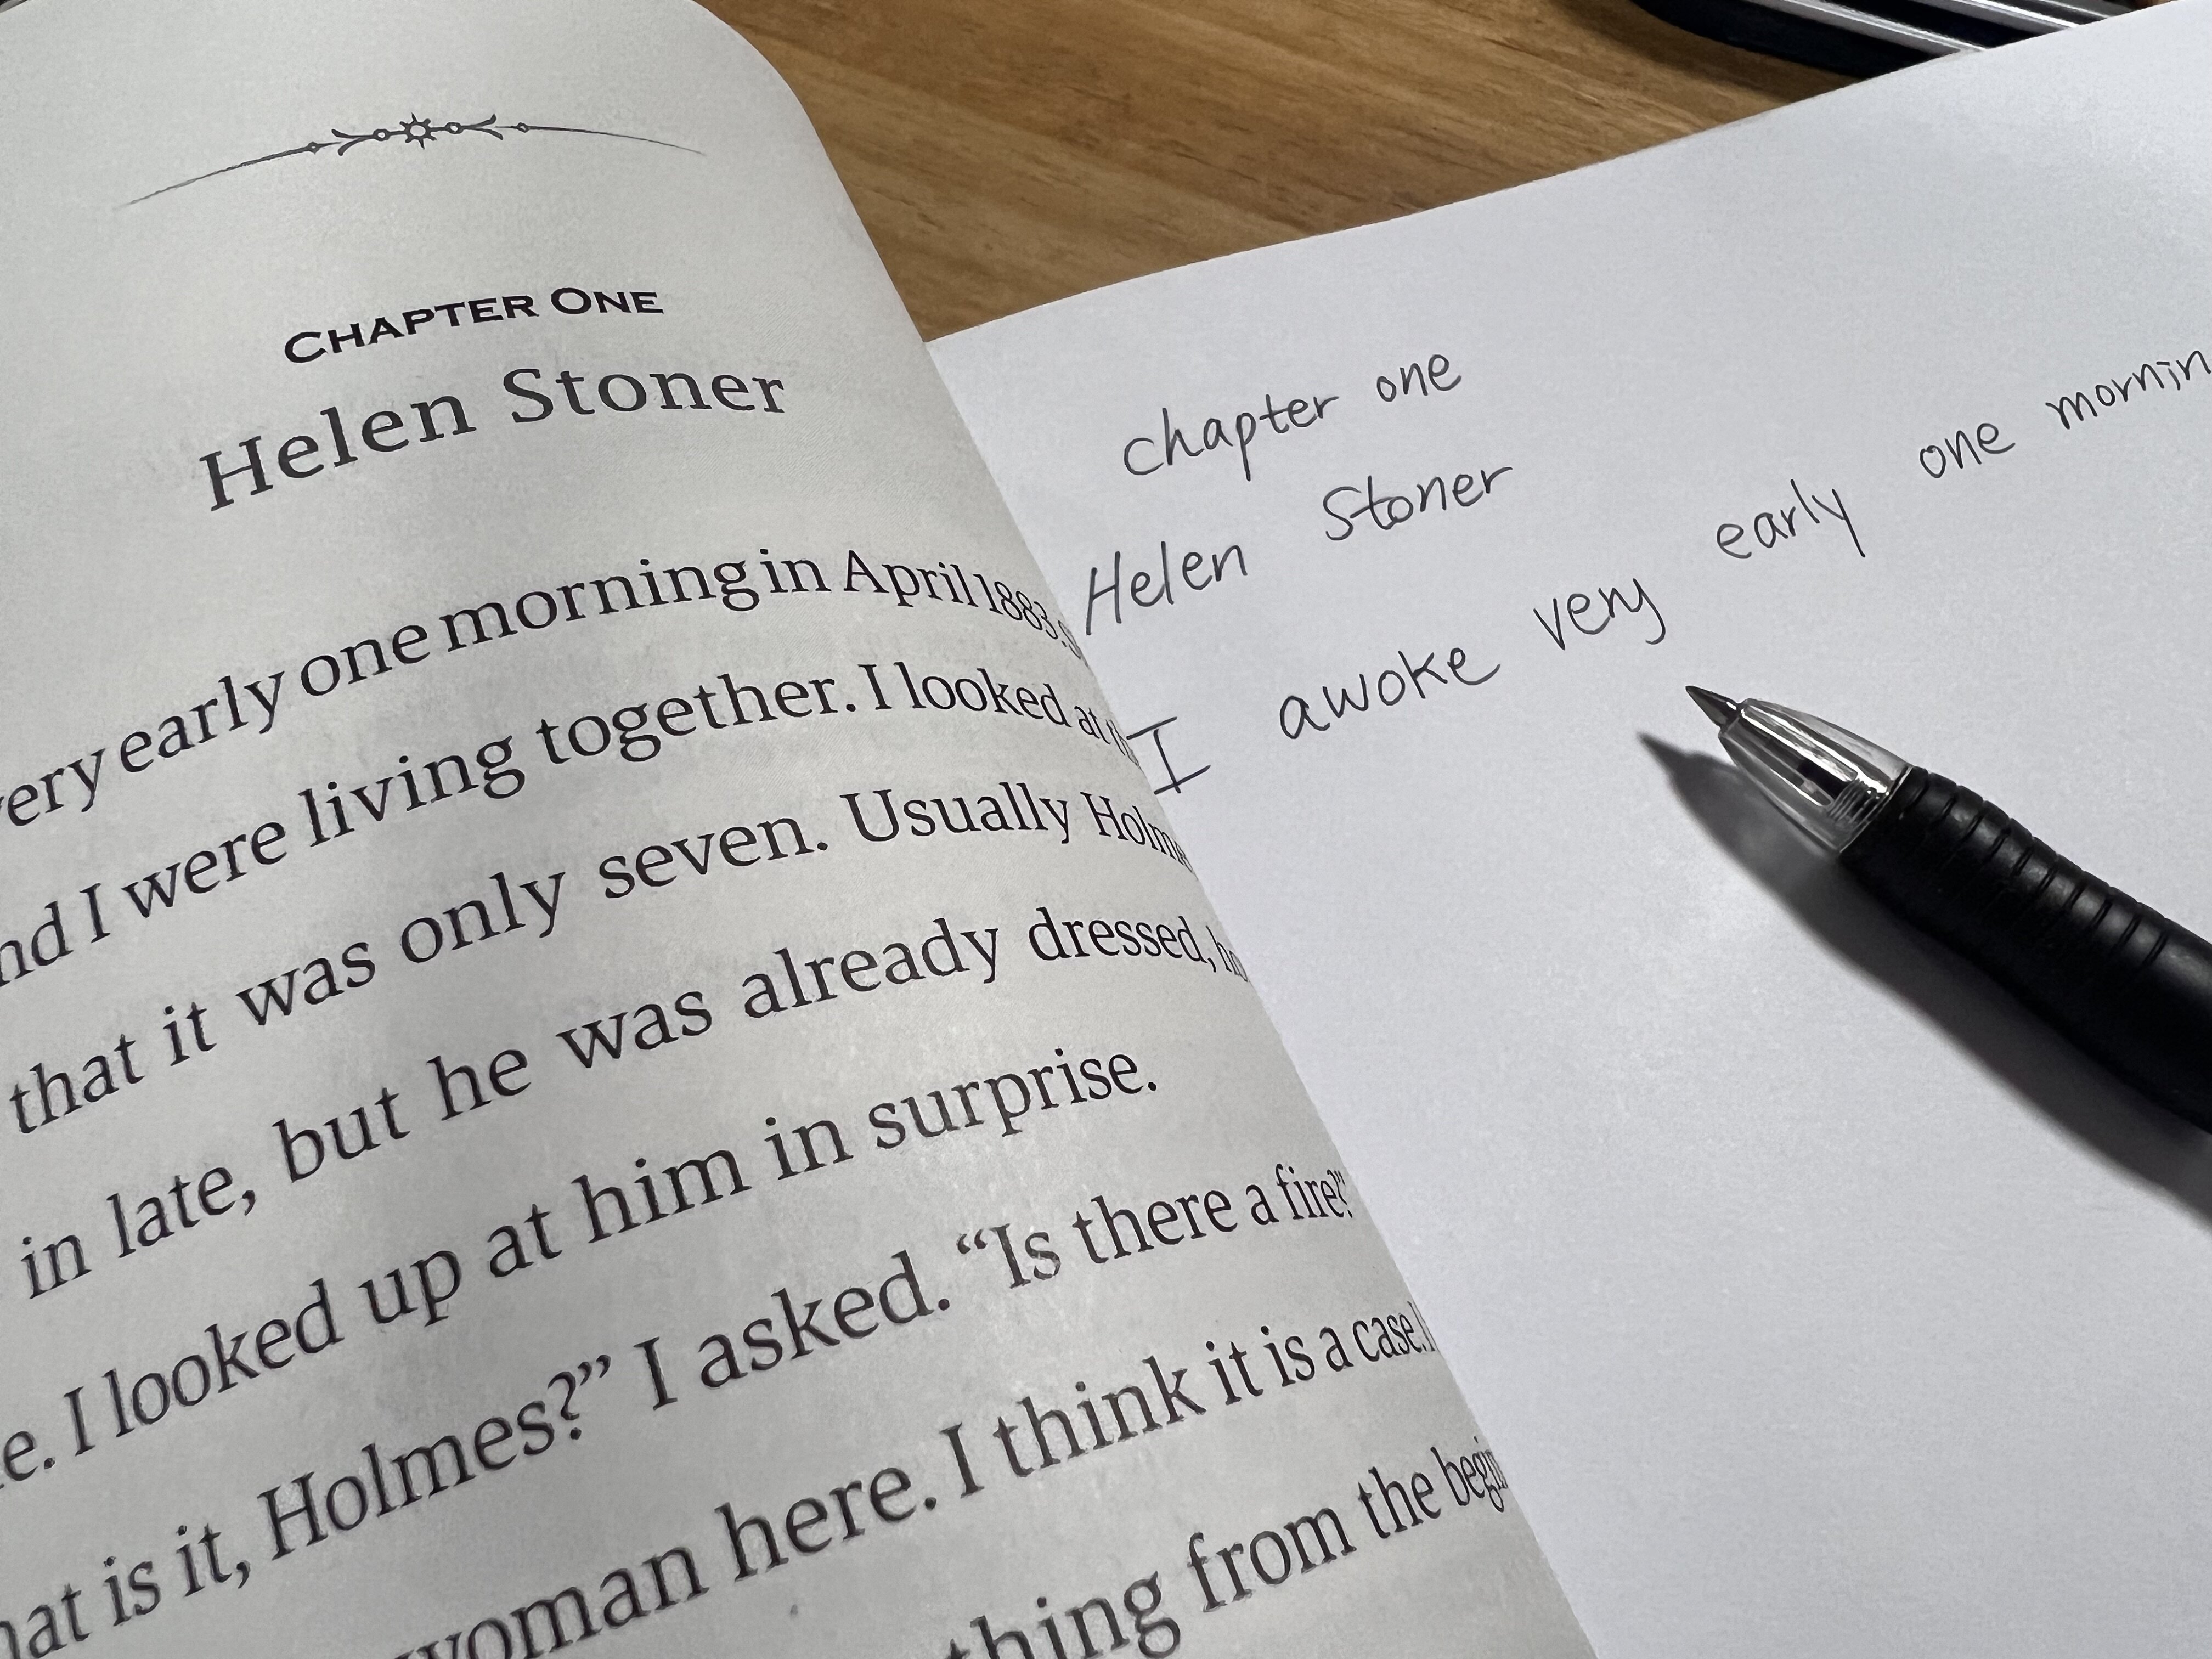 CHAPTER ONE
Helen Stoner
early one morning in April 1883,
I were living together. I looked at
that it was only seven. Usually
in late, but he was already dressed,
I looked up at him in surprise.
is it, Holmes?” I asked. “Is there a fire?”
woman here. I think it is a case.
from the
chapter one
Helen Stoner
I awoke very early one